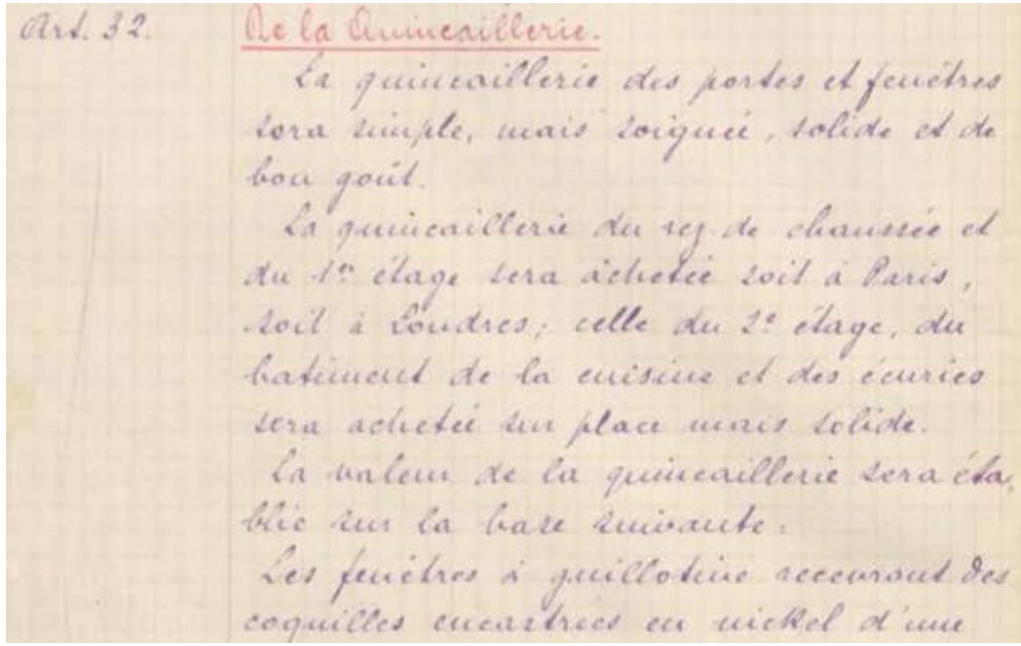 Art. 32. De la Quincaillerie.
La quincaillerie des portes et fenêtres
sera simple, mais soignée, solide et de
bon goût.
La quincaillerie du rez de chaussée et
du 1er étage sera achetée soit à Paris,
soit à Londres; celle du 2e étage, du
batiment de la cuisine et des écuries
sera achetée sur place mais solide.
La valeur de la quincaillerie sera éta-
blie sur la base suivante:
Les fenêtres à guillotine recevront des
coquilles encastrées en nickel d'une